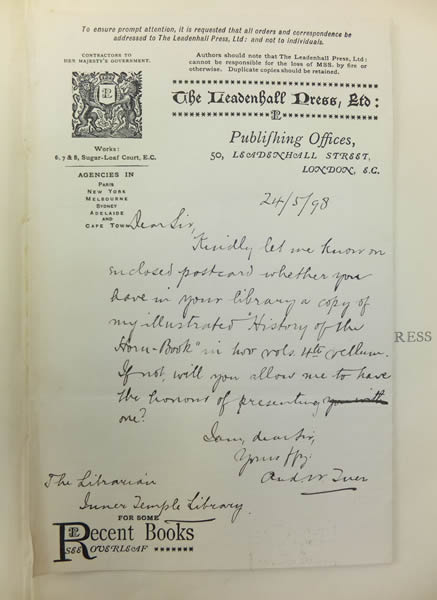 To ensure prompt attention, it is requested that all orders and correspondence be
addressed to The Leadenhall Press, Ltd: and not to individuals.
CONTRACTORS TO
HER MAJESTY'S GOVERNMENT.
Authors should note that The Leadenhall Press, Ltd:
cannot be responsible for the loss of MSS. by fire or
otherwise. Duplicate copies should be retained.
The Leadenhall Press, Ltd:
Publishing Offices,
50, LEADENHALL STREET,
LONDON, E.C.
Works:
6, 7 & 8, Sugar-Loaf Court, E.C.
AGENCIES IN
PARIS
NEW YORK
MELBOURNE
SYDNEY
ADELAIDE
AND
CAPE TOWN
24/5/98
Dear Sir,
Kindly let me know on
enclosed postcard whether you
have in your library a copy of
my illustrated "History of the
Horn-Book" in two vols. 4to vellum.
If not, will you allow me to have
the honour of presenting you with
one?
I am, dear Sir,
Yours ffy:
And W Tuer
The Librarian
Inner Temple Library.
FOR SOME
Recent Books
SEE OVERLEAF
RESS